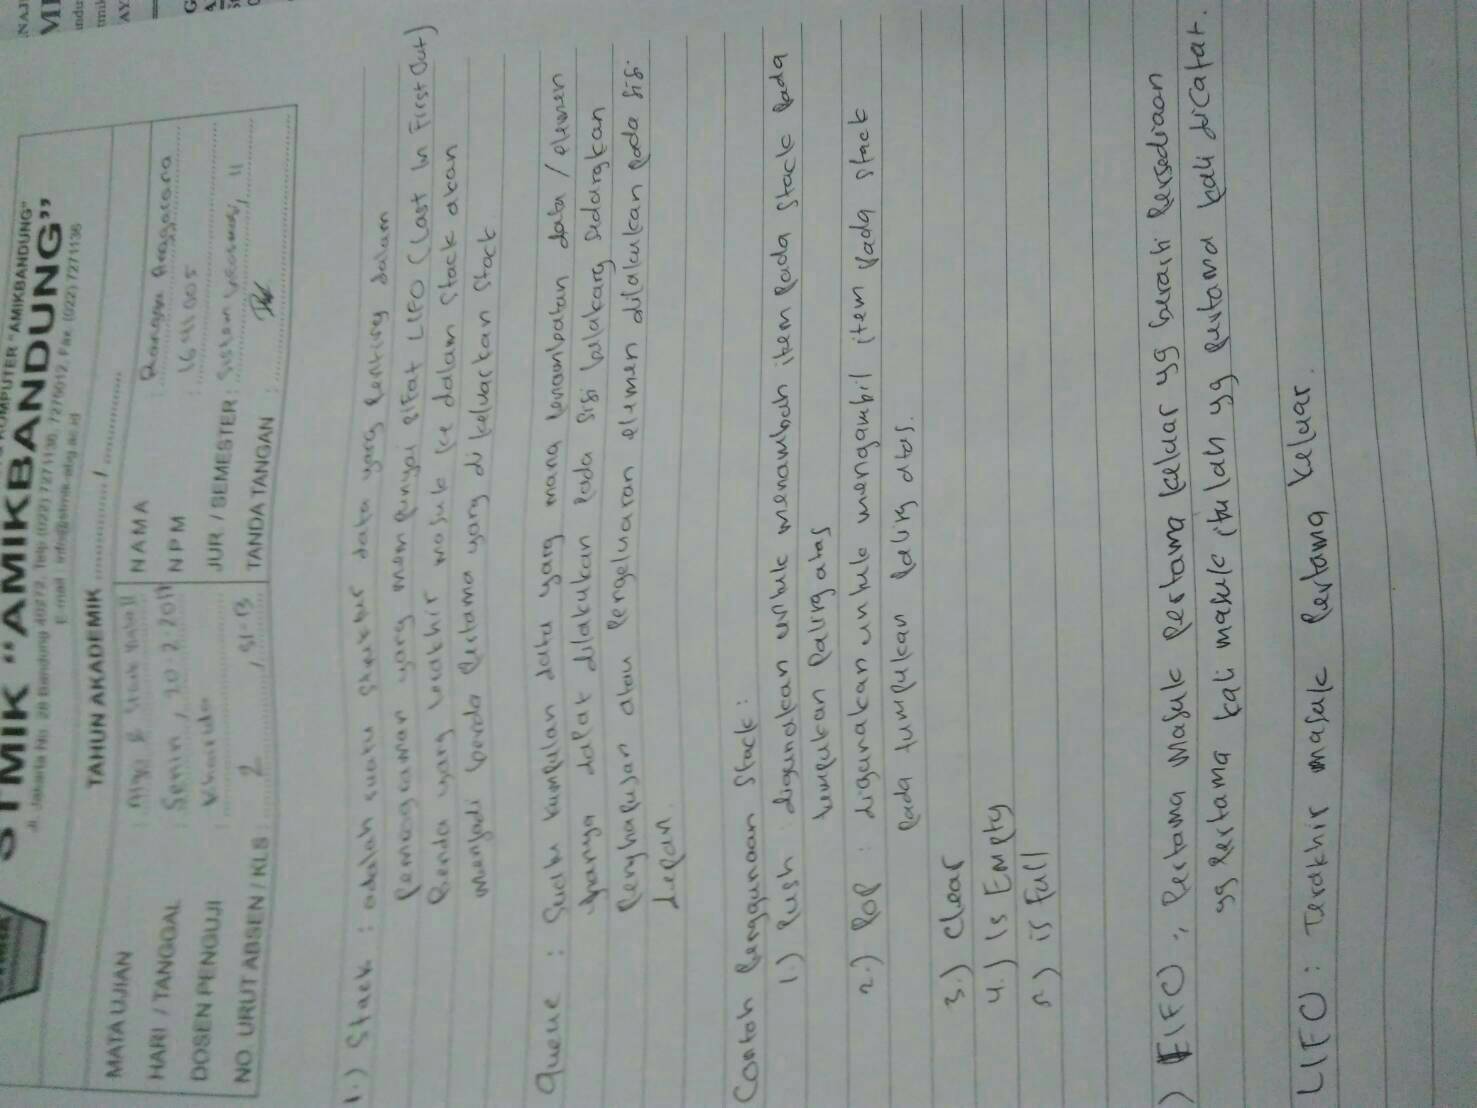 KOMPUTER "AMIKBANDUNG"
STMIK "AMIKBANDUNG"
Jl. Jakarta No. 28 Bandung 40272, Telp (022) 7271136, 7275012, Fax. (022) 7271136
E-mail : info@stmik-abg.ac.id
TAHUN AKADEMIK ............... / ...............
MATA UJIAN : Algo &
HARI / TANGGAL : Senin, 20-2-2017
DOSEN PENGUJI :
NO. URUT ABSEN / KLS : 2 , SI-B
NAMA :
NPM : 1641005
JUR. / SEMESTER : Sistem , II
TANDA TANGAN :
1.) Stack : adalah suatu struktur data yang penting dalam
pemograman yang mempunyai sifat LIFO (Last In First Out)
Benda yang terakhir masuk ke dalam stack akan
menjadi benda pertama yang di keluarkan stack
Queue : Suatu kumpulan data yang mana penambatan data / elemen
hanya dapat dilakukan pada sisi belakang sedangkan
penghapusan atau pengeluaran elemen dilakukan pada sisi
depan.
Contoh Penggunaan Stack :
1.) Push : digunakan untuk menambah item pada stack pada
tumpukan paling atas
2.) Pop : digunakan untuk mengambil item pada stack
pada tumpukan paling atas.
3.) Clear
4.) Is Empty
5.) is full
) FIFO : Pertama masuk pertama keluar yg berarti Persediaan
yg Pertama kali masuk itulah yg pertama kali dicatat.
LIFO : Terakhir masuk Pertama keluar.